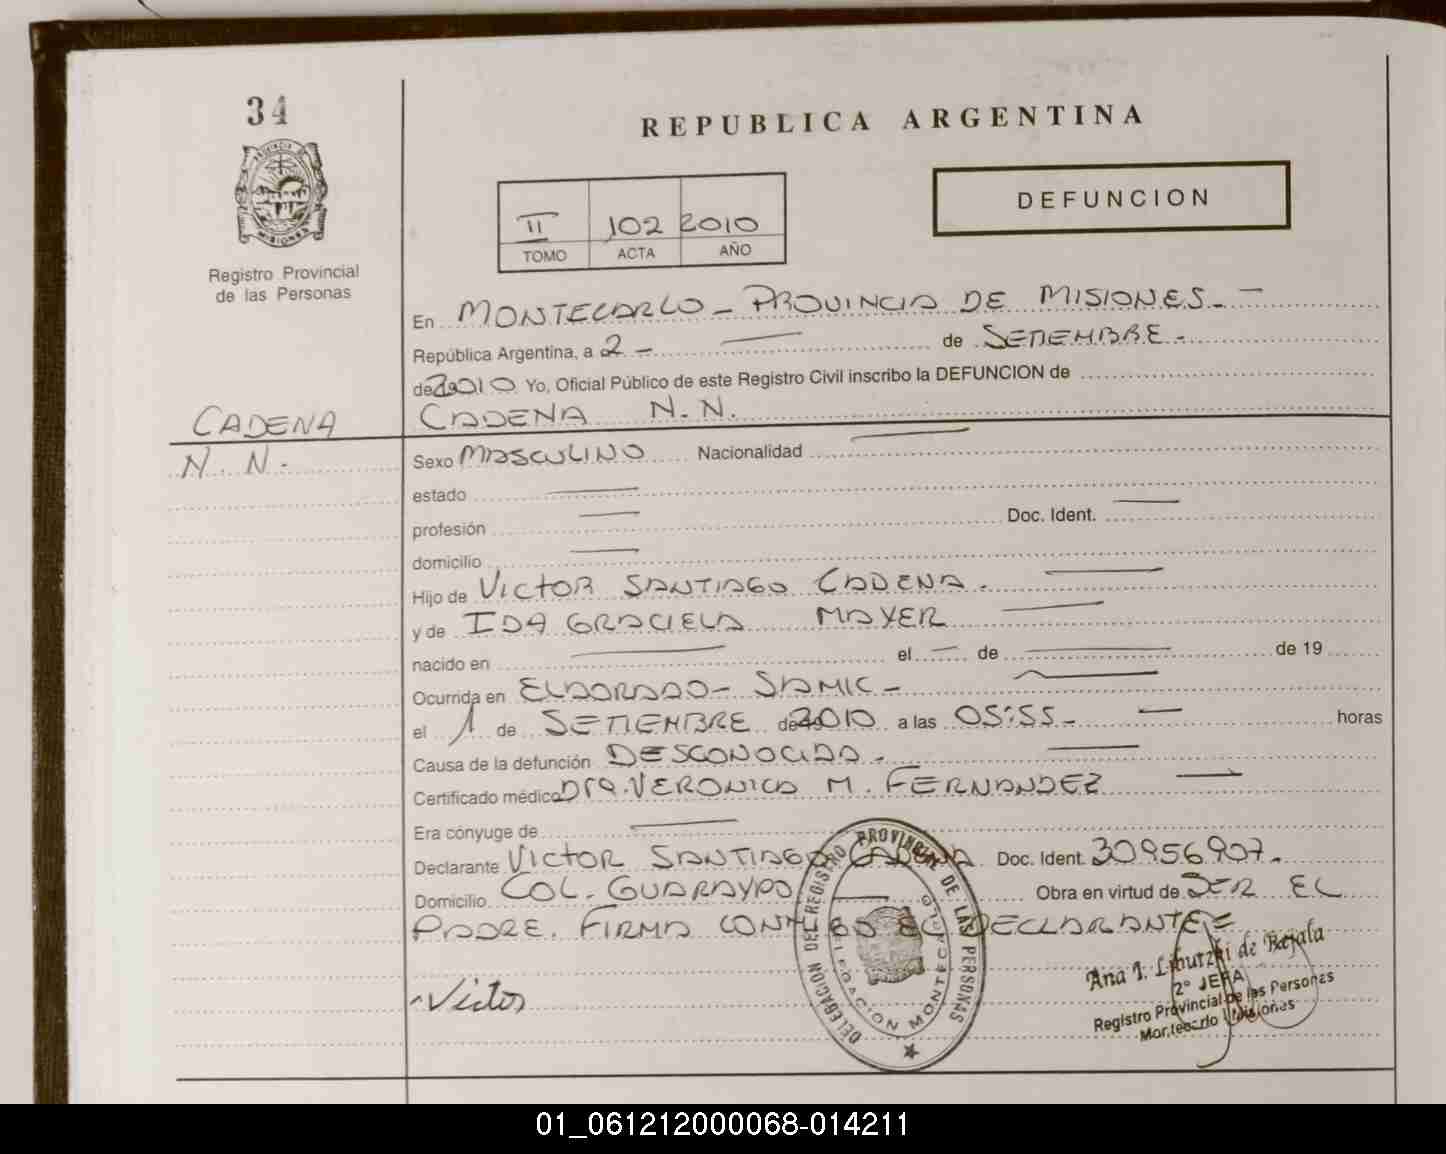 34
PROVINCIA DE
MISIONES
Registro Provincial
de las Personas
CADENA
N. N.-
REPUBLICA ARGENTINA
DEFUNCION
II 102 2010
TOMO ACTA AÑO
En MONTECARLO - PROVINCIA DE MISIONES.-
República Argentina, a 2- de SETIEMBRE.-
de 2010 Yo, Oficial Público de este Registro Civil inscribo la DEFUNCION de
CADENA N.N.
Sexo MASCULINO Nacionalidad
estado
profesión Doc. Ident.
domicilio
Hijo de VICTOR SANTIAGO CADENA.
y de IDA GRACIELA MAYER
nacido en el - de de 19
Ocurrida en ELDORADO- SAMIC-
el 1 de SETIEMBRE de 2010 a las 05:55- horas
Causa de la defunción DESCONOCIDA.
Certificado médico DRA. VERONICA M. FERNANDEZ
Era cónyuge de
Declarante VICTOR SANTIAGO CADENA Doc. Ident. 30956907.
Domicilio COL. GUARAYPO Obra en virtud de SER EL
PADRE. FIRMA CONMIGO EL DECLARANTE=
Victor
DELEGACION DEL REGISTRO PROVINCIAL DE LAS PERSONAS
DELEGACION MONTECARLO
2º JEFA
Registro Provincial de las Personas
Montecarlo Misiones
01_061212000068-014211